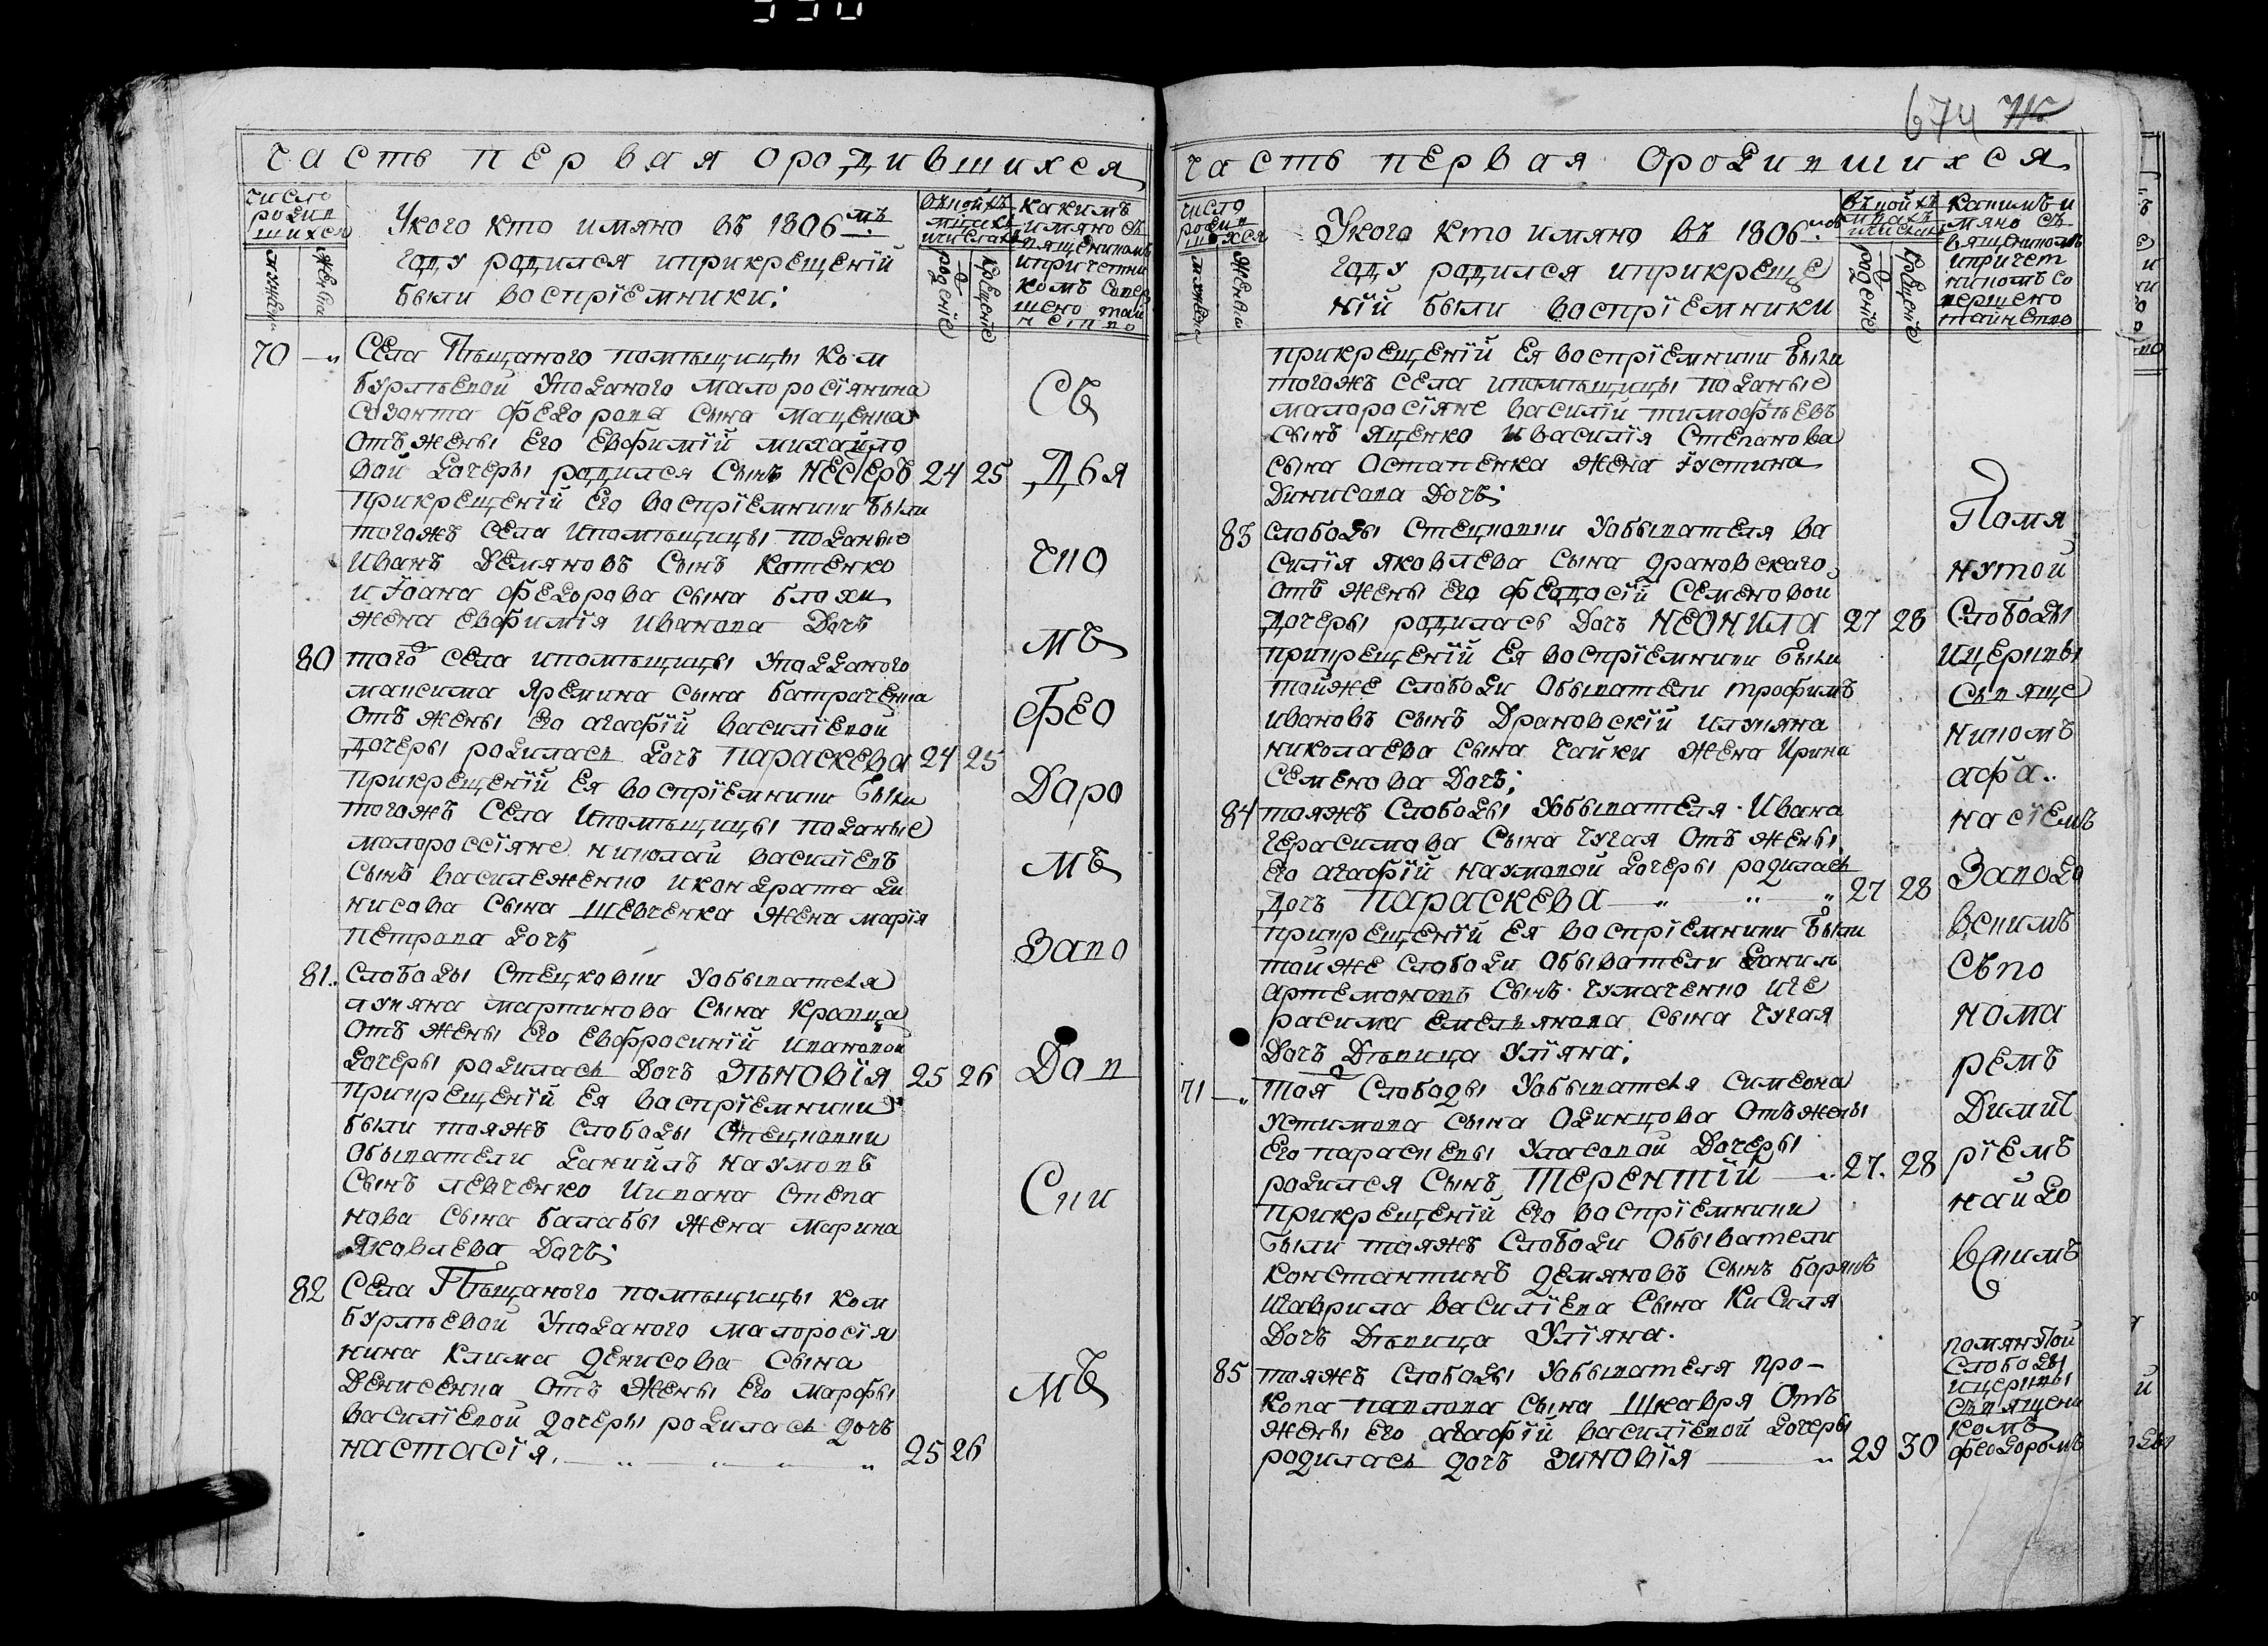 674
Часть первая ородившихся
число родившихся
мужеска
женска
Укого кто имяно въ 1806мъ
году родился иприкрещенїй
были воспрїемники:
рождение
крещение
какимъ
имяно св
ященникомъ
ипричетни
комъ совер
шено таи
нство
70
Села Пѣщаного помѣщицы Ком
бурлѣевой Уподаного малоросїянина
Созонта Федорова сына маценка
Отъ жены Его Евфимїй михайло
вой дочеры родился Сынъ НЕСТЕРЪ 24 25
прикрещенїй Его воспрїемники были
тогожъ Села ипомѣщицы поданые
Иванъ Демяновъ Сынъ Котенко
и Їоана Федорова сына блохи
жена Евфимїя Иванова Дочъ
80
того Села ипомѣщицы Уподданого
максима Яремина сына батраченка
Отъ жены Его агафїй Василїевой
дочеры родиласъ дочъ ПАРАСКЕВА 24 25
прикрещенїй Ея воспрїемники были
тогожъ Села ипомѣщицы поданые
малороссїяне николай василїевъ
Сынъ василеженко икондрата де
нисова Сына шевченка жена марїя
петрова дочъ
81
Слободы Стецковки Уобывателя
лукяна мартинова Сына Кравца
Отъ жены Его Евфросинїй ивановой
дочеры родиласъ Дочъ ЗѢНОВЇЯ 25 26
прикрещенїй Ея воспрїемники
были тояжъ слободы Стецковки
Обыватели данийлъ наумовъ
Сынъ левченко Иивана степа
нова Сына балабы жена марина
Яковлева Дочъ;
82
Села Пѣщаного помѣщицы Ком
бурлѣевой Уподаного малоросїя
нина клима денисова Сына
Денисенка Отъ Жены Его марфы
василїевой дочеры родиласъ дочъ
настасїя. 25 26
Съ
Дья
чко
мъ
Фео
Доро
мъ
Запо
Дов
Ски
мъ
Часть первая Ородившихся
число родившихся
мужеска
женска
Укого кто имяно въ 1806мъ
году родился иприкреще
нїй были воспрїемники
рождение
крещение
какимъ и
мяно св
ященникомъ
ипричет
никомъ со
вершено
таинство
прикрещенїй Ея воспрїемники были
тогожъ села ипомѣщицы поданые
малоросїяне василїй тимофѣевъ
сынъ яценко ивасилїя Степанова
сына Остапенка жена Їустина
Динисова Дочъ;
83
Слободы Стецковки Уобывателя Ва
силїя яковлева сына драновского
отъ жены его федосїй Семеновои
дочеры родиласъ Дочъ НЕОНИЛА 27 28
прикрещенїй Ея воспрїемники были
тойже слободы Обыватели трофимъ
ивановъ сынъ Драновскїй илукяна
николаева сына Чайки жена Ирина
семенова Дочъ;
84
тояжъ Слободы Уобывателя Ивана
герасимова Сына Чугая Отъ жены
Его агафїй наумовой дочеры родиласъ
дочъ ПАРАСКЕВА 27 28
прикрещенїй Ея воспрїемники были
тойже слободы Обыватели данилъ
артемоновъ Сынъ чумаченко иге
расима емелъянова сына Чугая
Дочъ Дѣвица Улїяна;
71
тояжъ Слободы Уобывателя симеона
Устимова сына Одинцова Отъжены
Его параскевы Уласовой Дочеры
родился Сынъ ТЕРЕНТЇЙ 27 28
прикрещенїй Его воспрїемники
были тояжъ Слободы Обыватели
константинъ демяновъ Сынъ борякъ
Игаврила василїева Сына Киселя
Дочъ Дѣвица Улїяна.
85
тояжъ Слободы Уобывателя про-
копа павлова сына Шкавря Отъ
жены Его агафїй василїевой дочеры
родиласъ дочъ ЗИНОВЇЯ 29 30
Помя
нутой
Слободы
ицерквы
свяще
никомъ
афа
насїемъ
Заподо
вскимъ
съпо
нома
ремъ
Димит
рїемъ
найдо
вскимъ
помянутой
Слободы
ицерквы
священи
комъ
феодоромъ